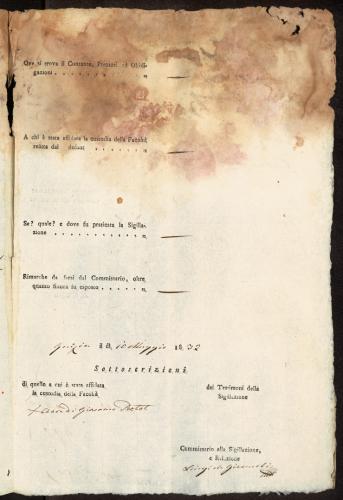 Ove si trova il Contante, Preziosi ed Obbli-
gazioni . . . . . . . . . . „
A chi è stata affidata la custodia della Facoltà
relitta dal defunt . . . . . . . . „
Se? quale? e dove fu praticata la Sigilla-
zione . . . . . . . . . . . „
Rimarche da farsi dal Commissario, oltre
quanto finora fu esposto . . . . . „
li 10 Maggio 1832
Sottoscrizioni
di quello a cui è stata affidata
la custodia della Facoltà
dei Testimoni della
Sigillazione
Giovanni
Commissario alla Sigillazione,
e Relazione